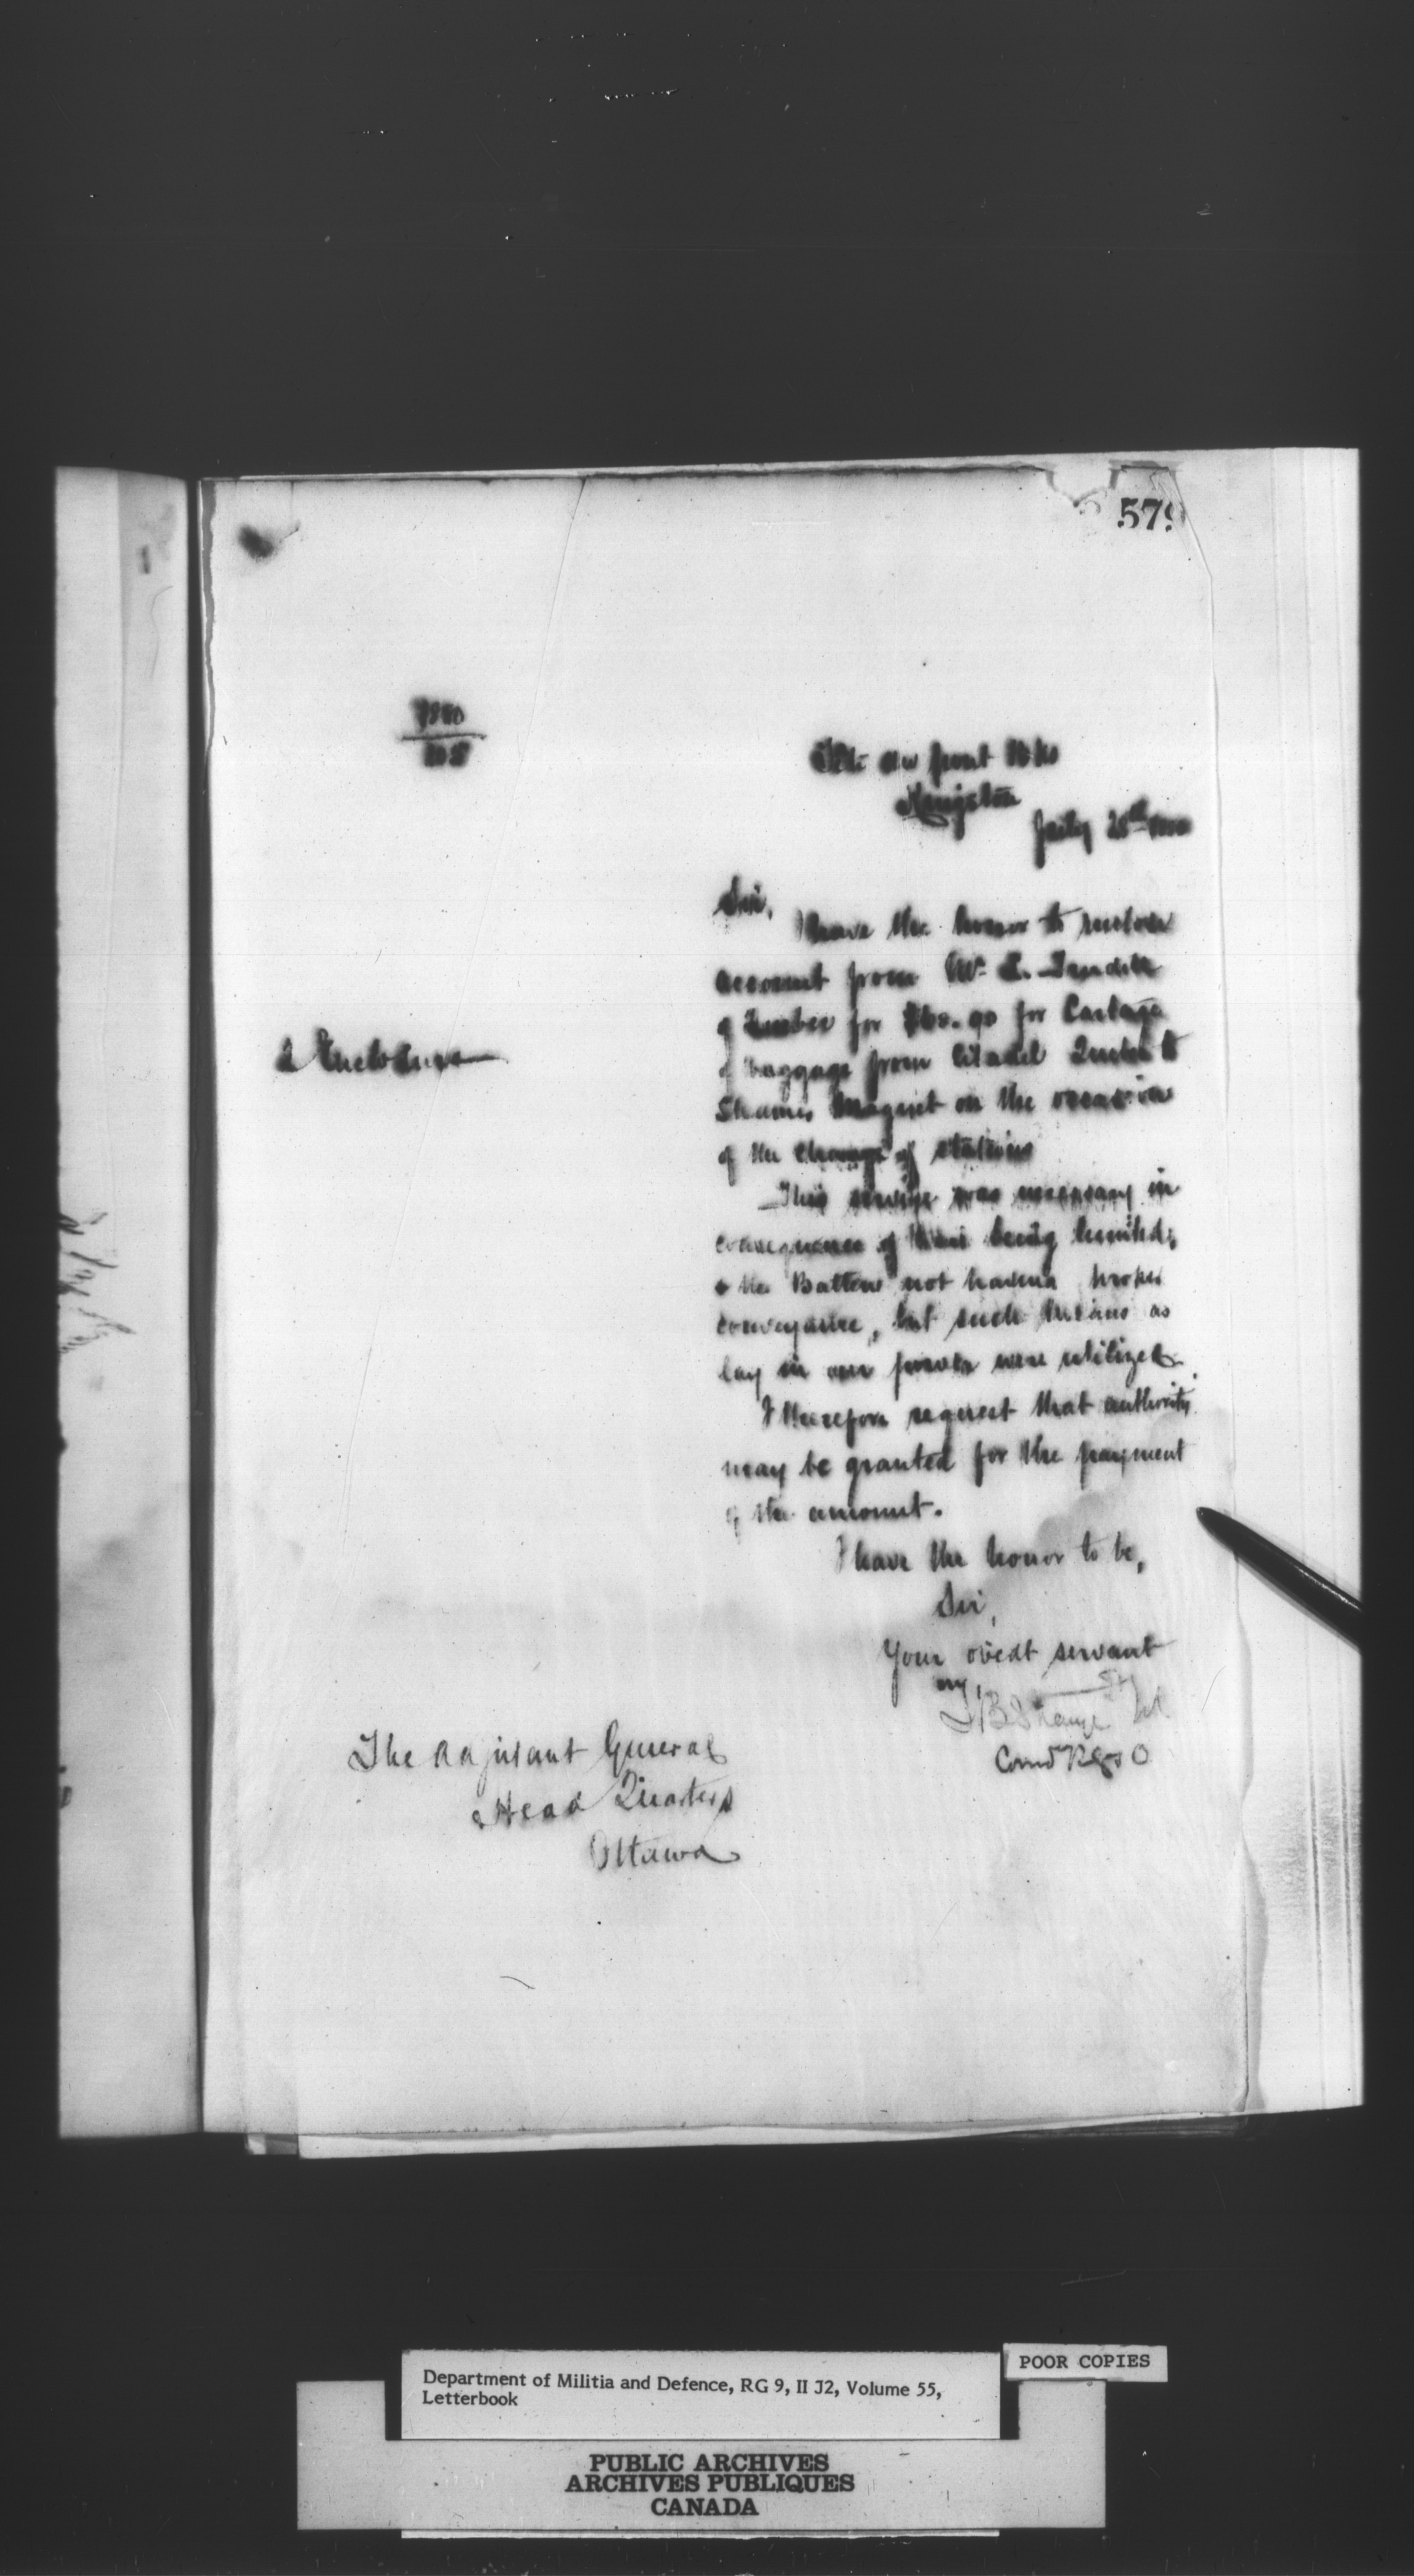 579
Tête du pont Bks
Kingston
July 28th
Sir,
I have the honor to enclose
account from Mr
of Quebec for for Cartage
of baggage from Citadel Quebec to
Steamer Magnet on the occasion
of the change of stations
This service was necessary in
consequence of time being limited,
& the Battery not having proper
conveyance, but such means as
lay in our power were utilized.
I therefore request that authority
may be granted for the payment
of the amount.
I have the honor to be,
Sir,
Your obedt servant
TBStrange Lt
Comd
2 Enclosures
The Adjutant General
Head Quarters
Ottawa
POOR COPIES
Department of Militia and Defence, RG 9, II J2, Volume 55,
Letterbook
PUBLIC ARCHIVES
ARCHIVES PUBLIQUES
CANADA